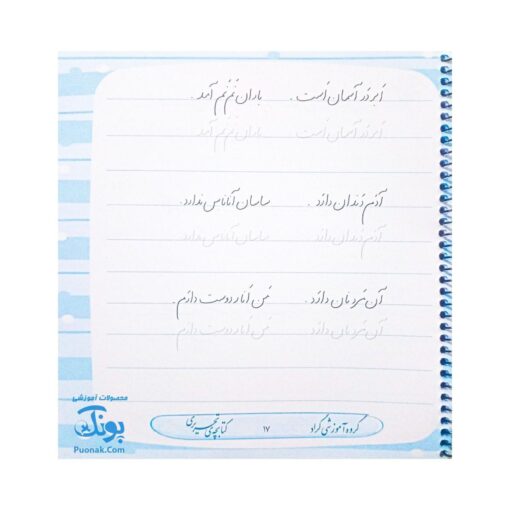 اَبر دَر آسمان اَست . باران نَم نَم آمَد .
اَبر دَر آسمان اَست . باران نَم نَم آمَد .
آدَم دَندان دارَد . ساسان آناناس ندارد.
آدَم دَندان دارَد . ساسان آناناس ندارد.
آن مَرد نان دارَد . مَن اَنار دوست دارَم .
آن مَرد نان دارَد . مَن اَنار دوست دارَم .
گروه آموزشی گراد ۱۷ کتابچه‌ی تحریری
محصولات آموزشی
پونک
Puonak.Com